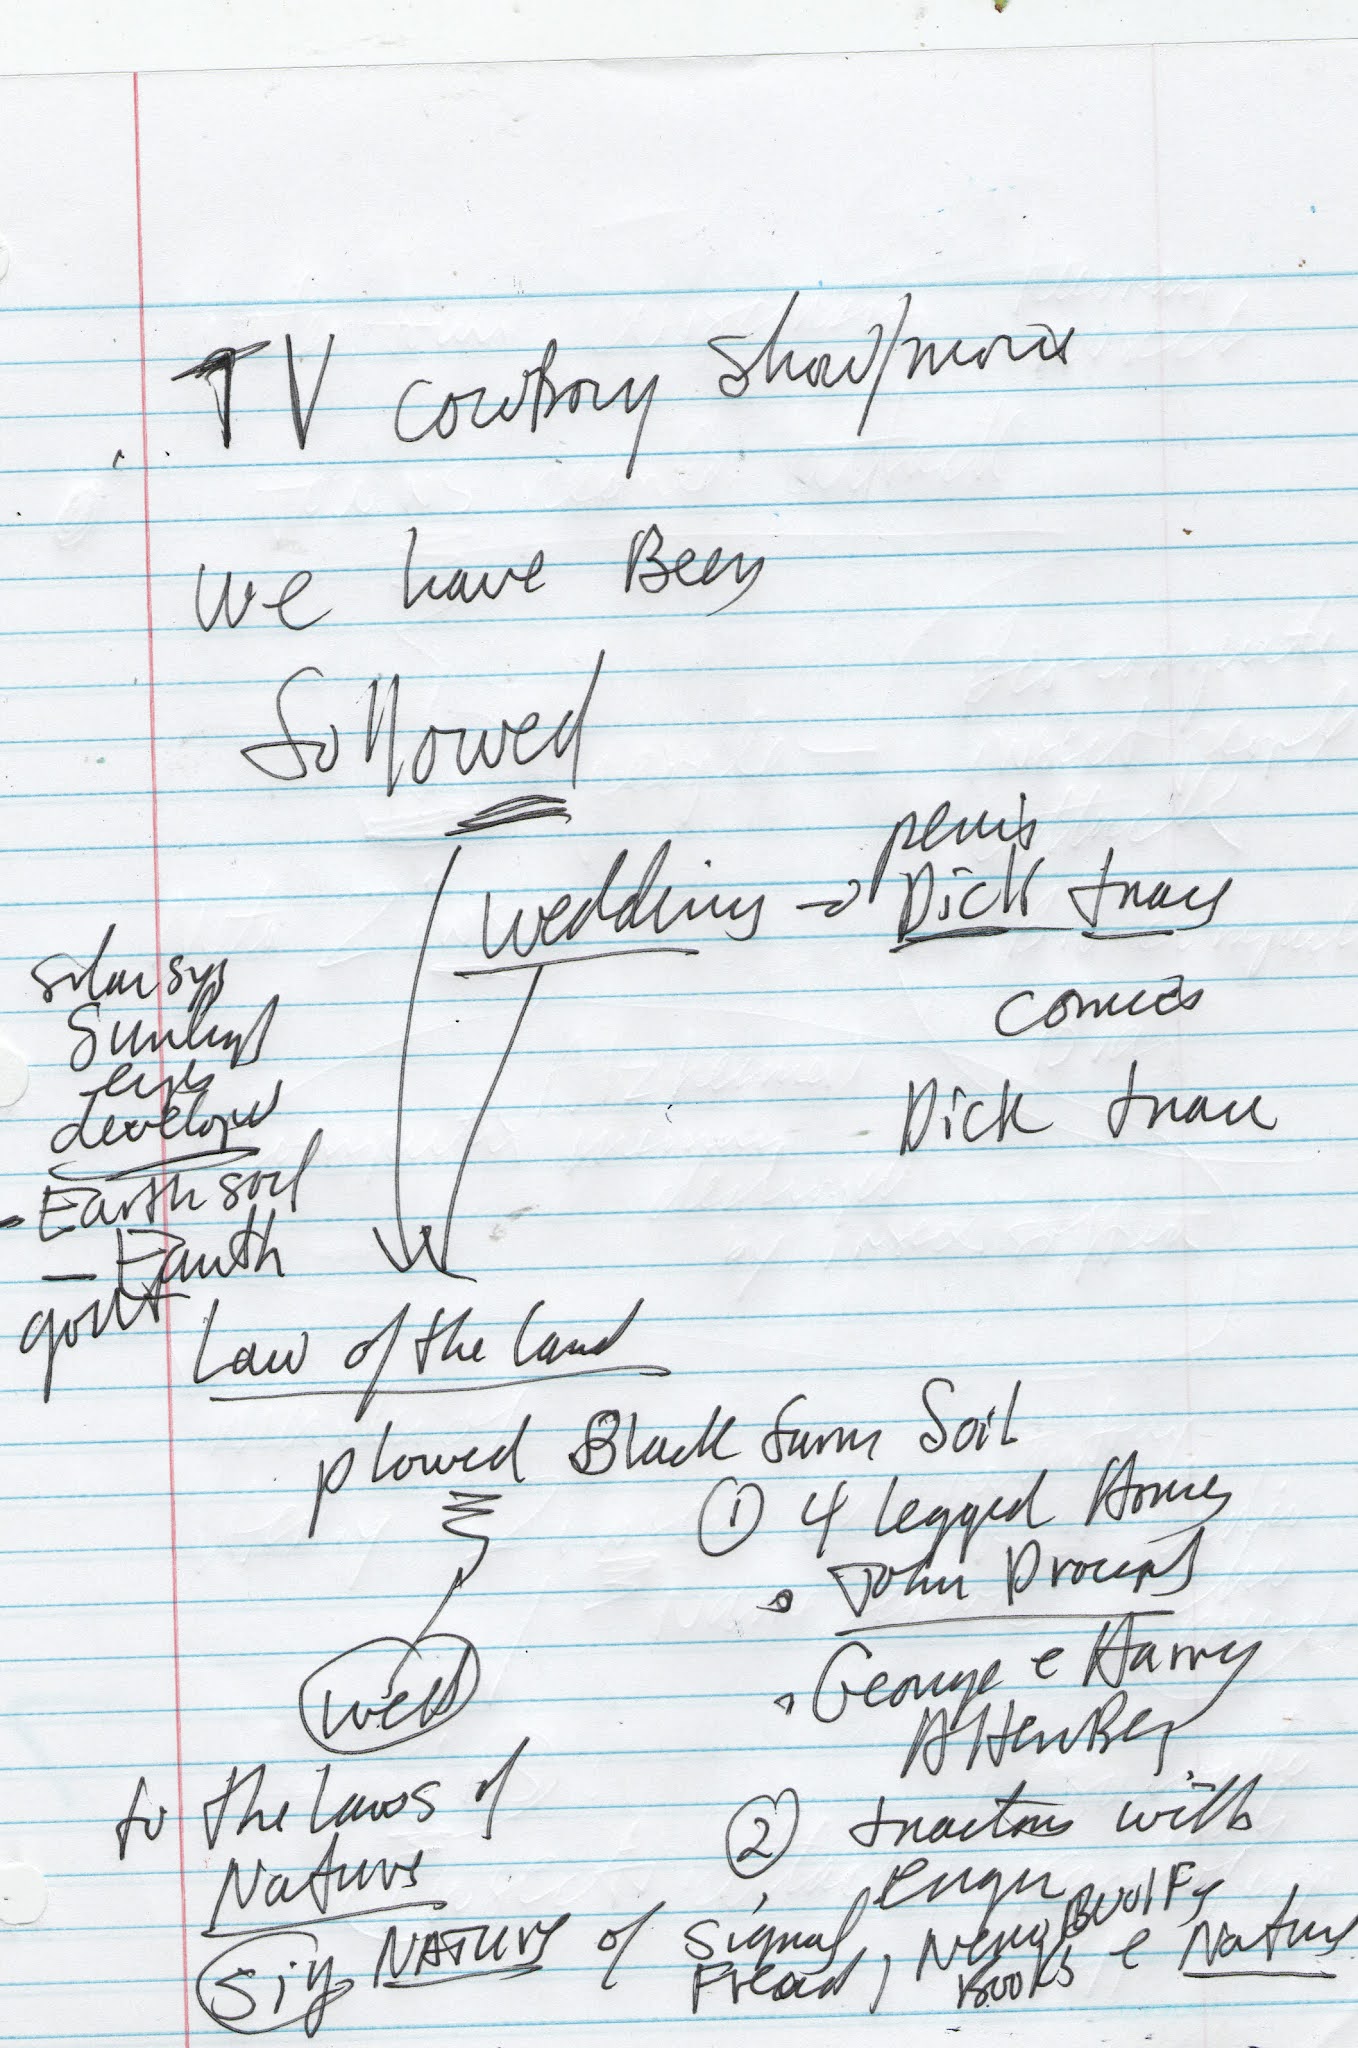 TV cowboy show/movie
we have Been
followed
wedding → penis
Dick tracy
comics
Dick trace
solar sys
Sunlight
eyes
developed
- Earth soil
- Earth
govt
Law of the land
plowed Black farm Soil
① 4 legged Horses
John
George e Harry
② tractors with
wed
to the laws of
Nature
Sig NATURE of signal
Books e Nature